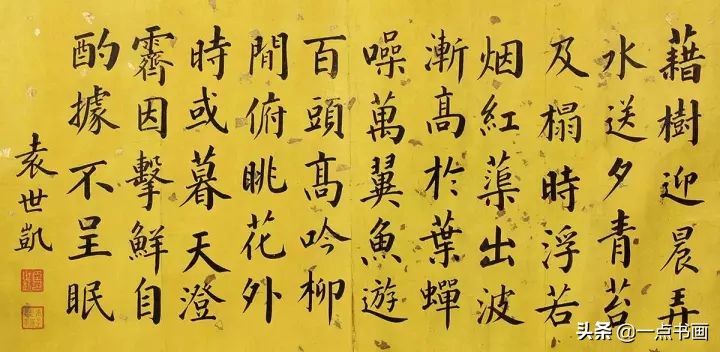 藉樹迎晨弄
水送夕青苔
及榻時浮若
烟紅蕖出波
漸高於葉蟬
噪萬翼魚遊
百頭高吟柳
間俯眺花外
時或暮天澄
霽因擊鮮自
酌據不呈眠
袁世凱
头条 @一点书画